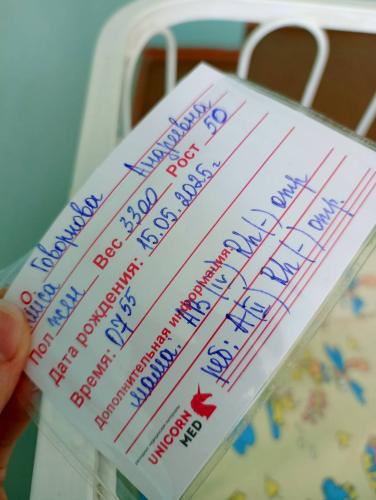 О Говоркова Андреевна
Пол жен Вес 3300 Рост 50
Дата рождения: 15.05.2025 г
Время: 0755
Дополнительная информация:
мама: AB (IV) Rh (-) отр
реб: A(II) Rh (-) отр.
UNICORN
MED